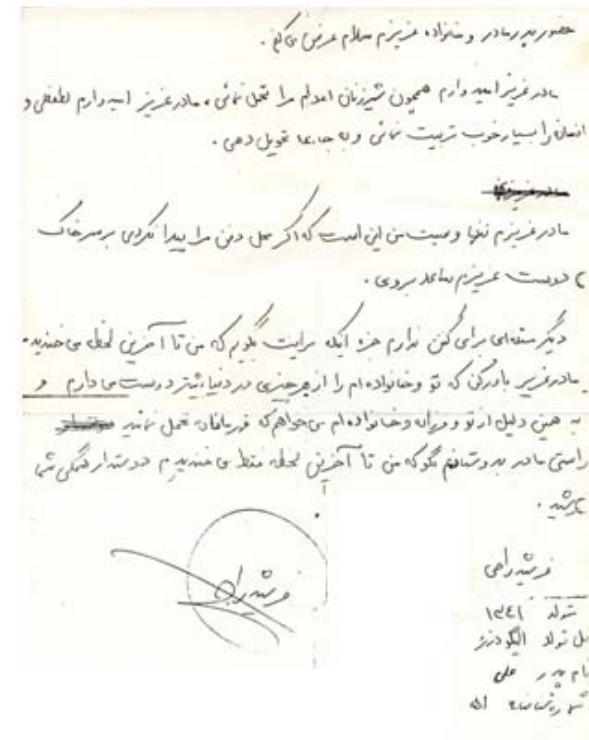 حضور پدر مادر و خانواده عزیزم سلام عرض می‌کنم.
مادر عزیز امید دارم همچون شیرزنان اعدام مرا تحمل نمائی، مادر عزیز امید دارم لطفعلی و
افسانه را بسیار خوب تربیت نمائی و به جامعه تحویل دهی.
مادر عزیزم تنها وصیت من این است که اگر محل دفن مرا پیدا کردی بر سر خاک
دوست عزیزم بروی.
دیگر مسئله‌ای برای گفتن ندارم جز اینکه برایت بگویم که من تا آخرین لحظه می‌خندیدم
مادر عزیز باور کن که تو و خانواده‌ام را از هر چیزی در دنیا بیشتر دوست می‌دارم و
به همین دلیل از تو و پدرم و خانواده‌ام می‌خواهم که قهرمانانه تحمل نمائید
راستی مادر به دوستانم بگو که من تا آخرین لحظه فقط می‌خندیدم دوستدار همگی شما
باشید.
فرشید راجی
فرشید راجی
تولد ۱۳۴۱
محل تولد الیگودرز
نام پدر علی
شماره شناسنامه